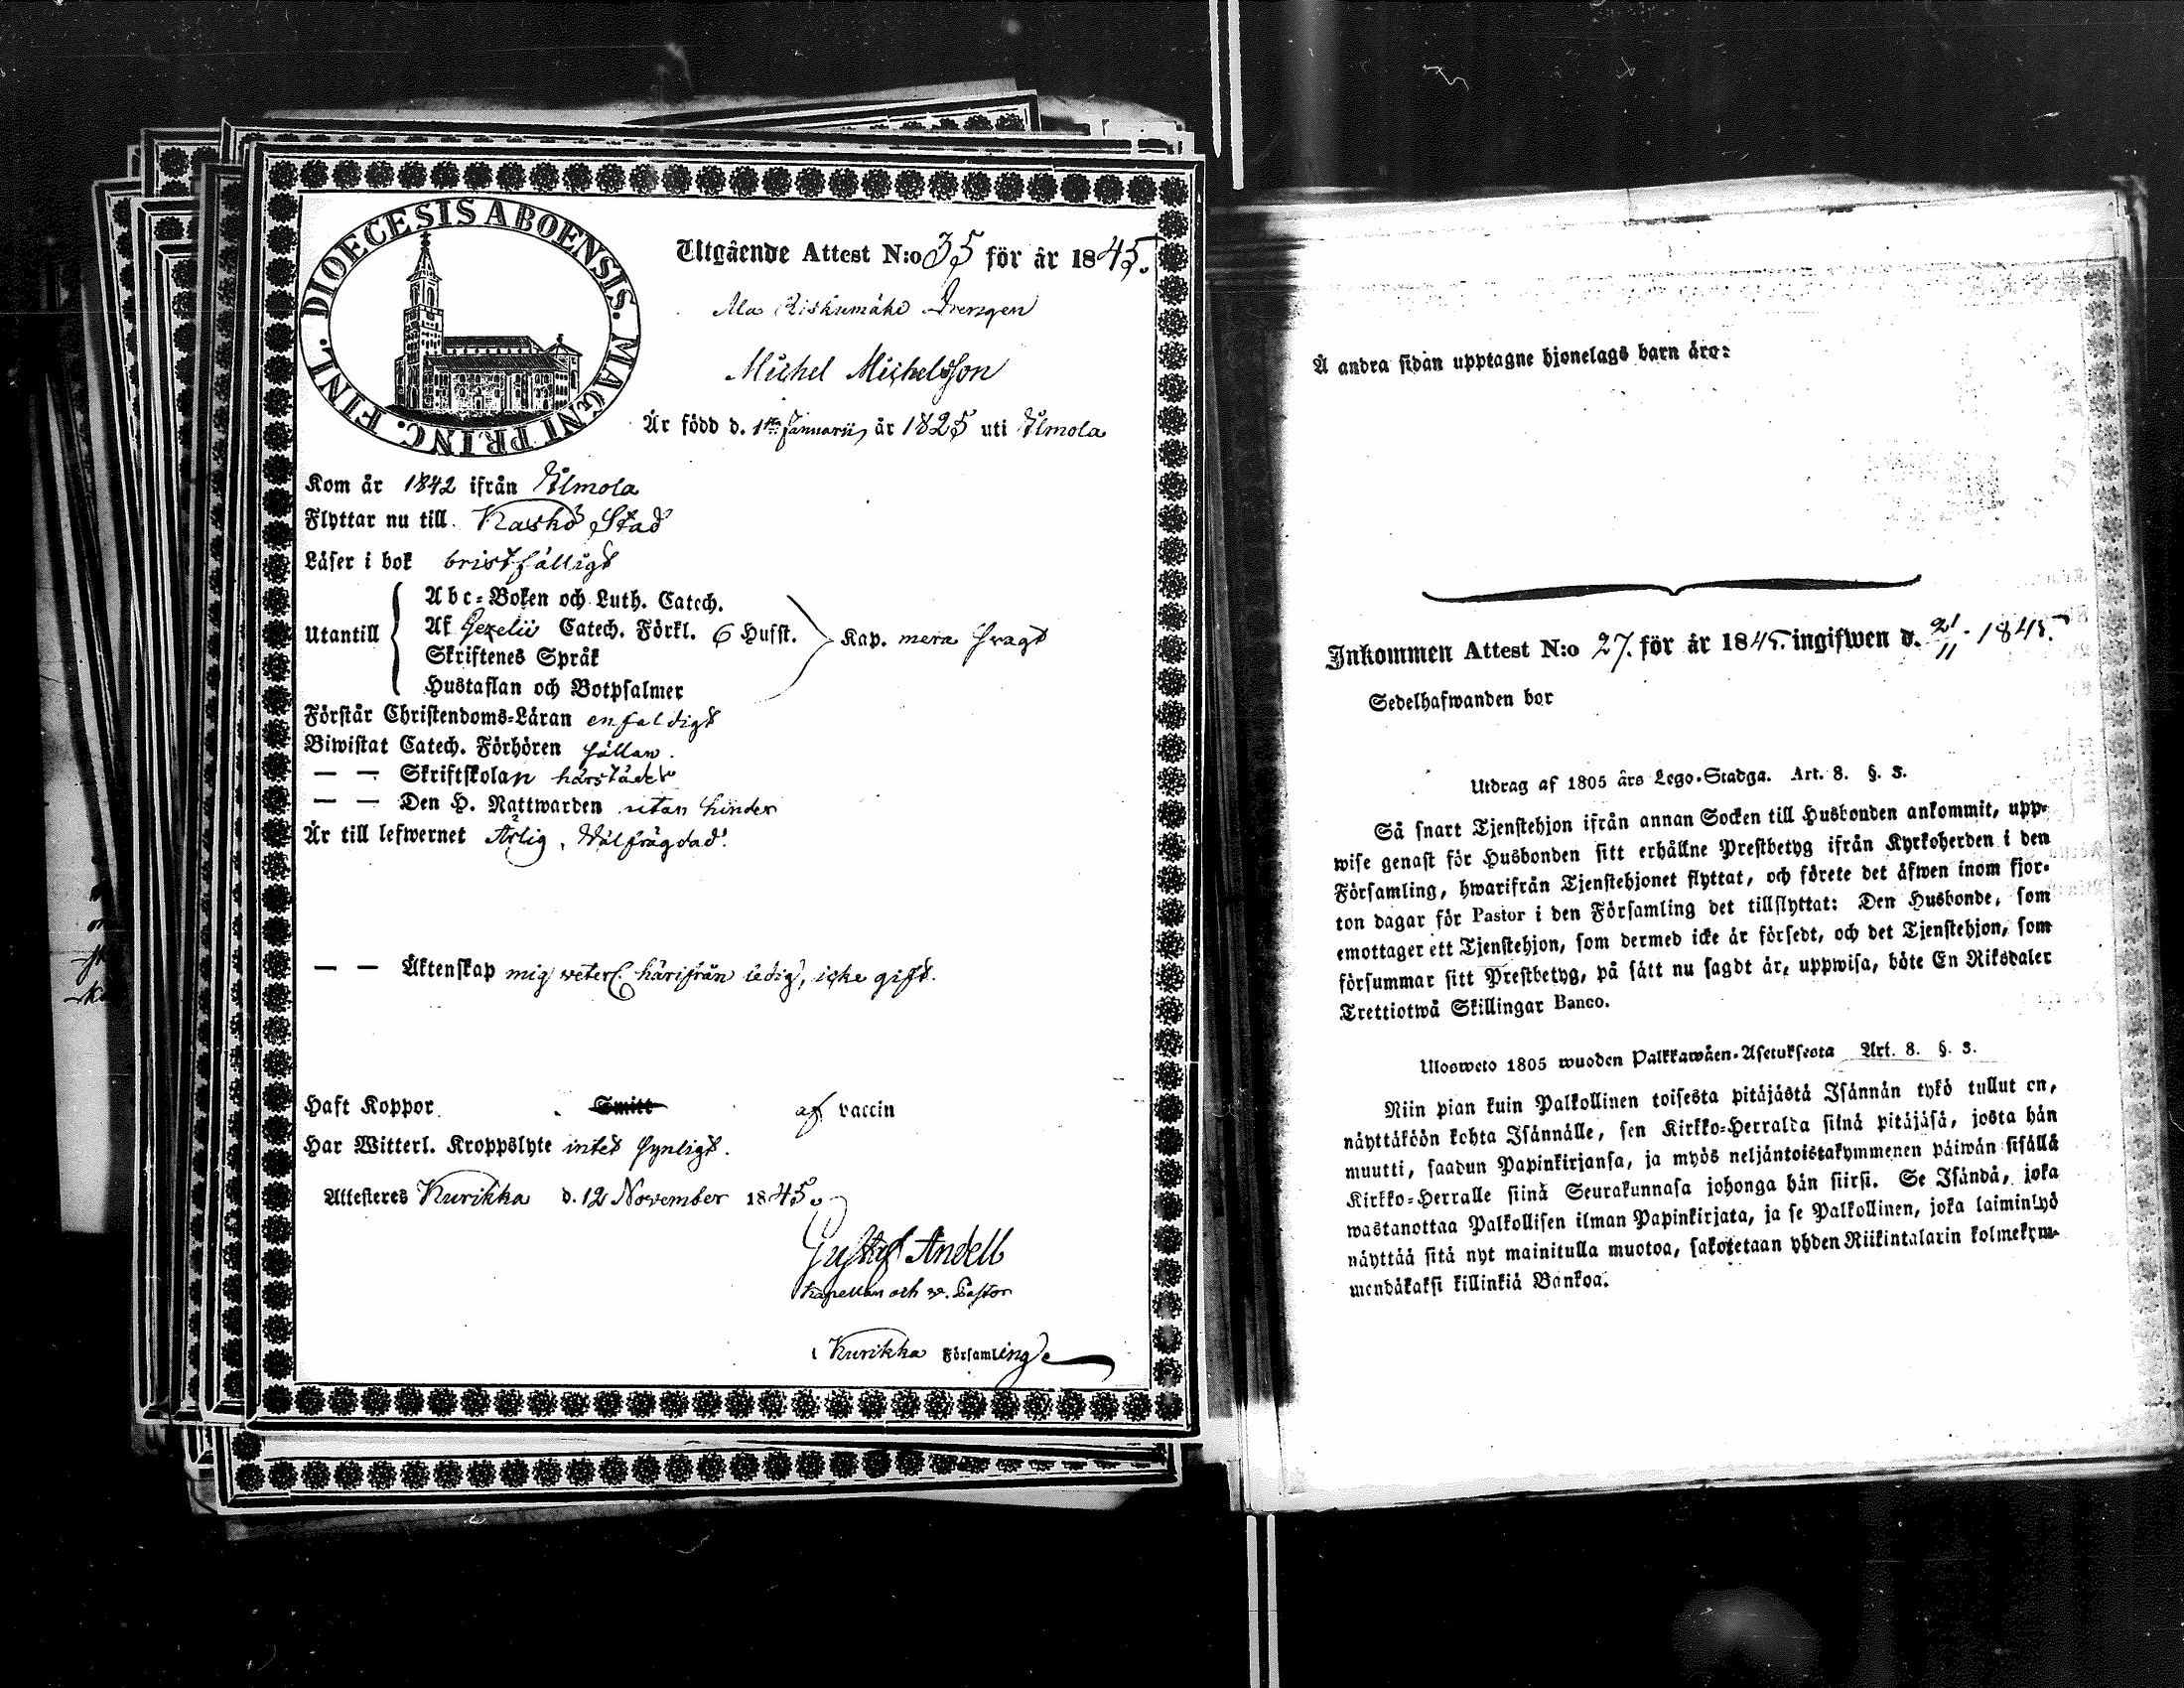 DIOECESIS ABOENSIS. MAGNI PRINC. FINL.
Utgående Attest N:o 35 för år 1845.
Ala Riskumäki Drengen
Michel Michelsson
Är född d. 1sta Januarii år 1825 uti Ilmola
Kom år 1842 ifrån Ilmola
Flyttar nu till Kaskö Stad
Läser i bok bristfälligt
Utantill
Abc-Boken och Luth. Catech.
Af Gezelii Catech. Förkl. 6 Hufst.
Skriftenes Språk
Hustaflan och Botpsalmer
Kap. mera svagt
Förstår Christendoms-Läran enfaldigt
Biwistat Catech. Förhören sällan.
— — Skriftskolan härstädes
— — Den H. Nattwarden utan hinder
Är till lefwernet Ärlig, Wälfrägdad.
— — Äktenskap mig veterl. härifrån ledig, icke gift.
Haft Koppor Smitt af vaccin
Har Witterl. Kroppslyte intet synligt.
Attesteres Kurikka d. 12 November 1845.
Gustaf Andell
Kapellan och v. Pastor
i Kurikka Församling
Å andra sidan upptagne hjonelags barn äro:
Inkommen Attest N:o 27. för år 1845. ingifwen d. 21/11. 1845.
Sedelhafwanden bor
Utdrag af 1805 års Lego-Stadga. Art. 8. §. 3.
Så snart Tjenstehjon ifrån annan Socken till Husbonden ankommit, upp-
wise genast för Husbonden sitt erhållne Prestbetyg ifrån Kyrkoherden i den
Församling, hwarifrån Tjenstehjonet flyttat, och förete det äfwen inom fjor-
ton dagar för Pastor i den Församling det tillflyttat: Den Husbonde, som
emottager ett Tjenstehjon, som dermed icke är försedt, och det Tjenstehjon, som
försummar sitt Prestbetyg, på sätt nu sagdt är, uppwisa, böte En Riksdaler
Trettiotwå Skillingar Banco.
Ulosweto 1805 wuoden Palkkawäen-Asetuksesta Art. 8. §. 3.
Niin pian kuin Palkollinen toisesta pitäjästä Isännän tykö tullut on,
näyttäköön kohta Isännälle, sen Kirkko-Herralda siinä pitäjäsä, josta hän
muutti, saadun Papinkirjansa, ja myös neljäntoistakymmenen päiwän sisällä
Kirkko-Herralle siinä Seurakunnasa johonga hän siirsi. Se Isändä, joka
wastanottaa Palkollisen ilman Papinkirjata, ja se Palkollinen, joka laiminlyö
näyttää sitä nyt mainitulla muotoa, sakotetaan yhden Riikintalarin kolmekym-
mendäkaksi killinkiä Bankoa.